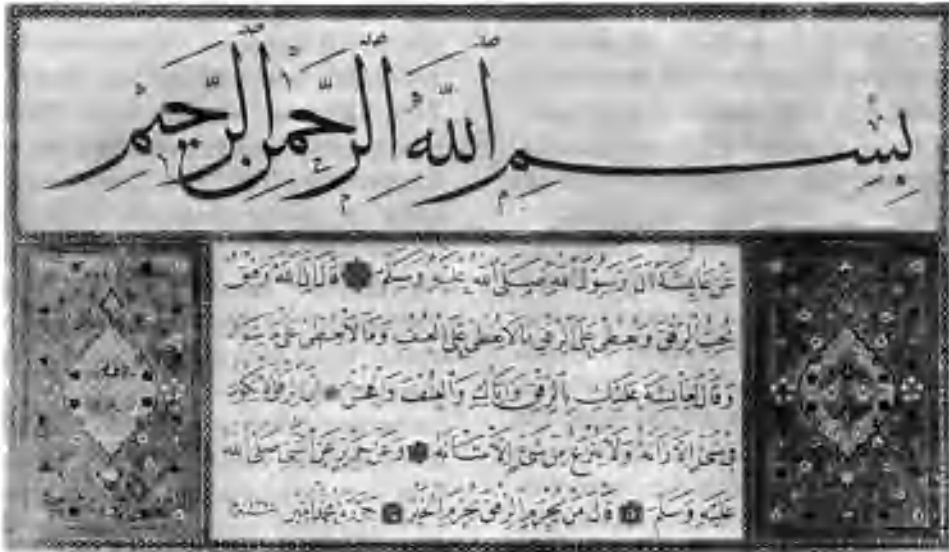 بِسْمِ ٱللّٰهِ ٱلرَّحْمٰنِ ٱلرَّحِيمِ
عَنْ عَائِشَةَ اَنَّ رَسُولَ اللّٰهِ صَلَّى اللّٰهُ عَلَيْهِ وَسَلَّمَ قَالَ اِنَّ اللّٰهَ رَفِيقٌ
يُحِبُّ الرِّفْقَ وَيُعْطِى عَلَى الرِّفْقِ مَا لَا يُعْطِى عَلَى الْعُنْفِ وَمَا لَا يُعْطِى عَلَى مَا سِوَاهُ
وَقَالَ لِعَائِشَةَ عَلَيْكِ بِالرِّفْقِ وَاِيَّاكِ وَالْعُنْفَ وَالْفُحْشَ اِنَّ الرِّفْقَ لَا يَكُونُ
فِى شَىْءٍ اِلَّا زَانَهُ وَلَا يُنْزَعُ مِنْ شَىْءٍ اِلَّا شَانَهُ وَعَنْ جَرِيرٍ عَنِ النَّبِىِّ صَلَّى اللّٰهُ
عَلَيْهِ وَسَلَّمَ قَالَ مَنْ يُحْرَمِ الرِّفْقَ يُحْرَمِ الْخَيْرَ